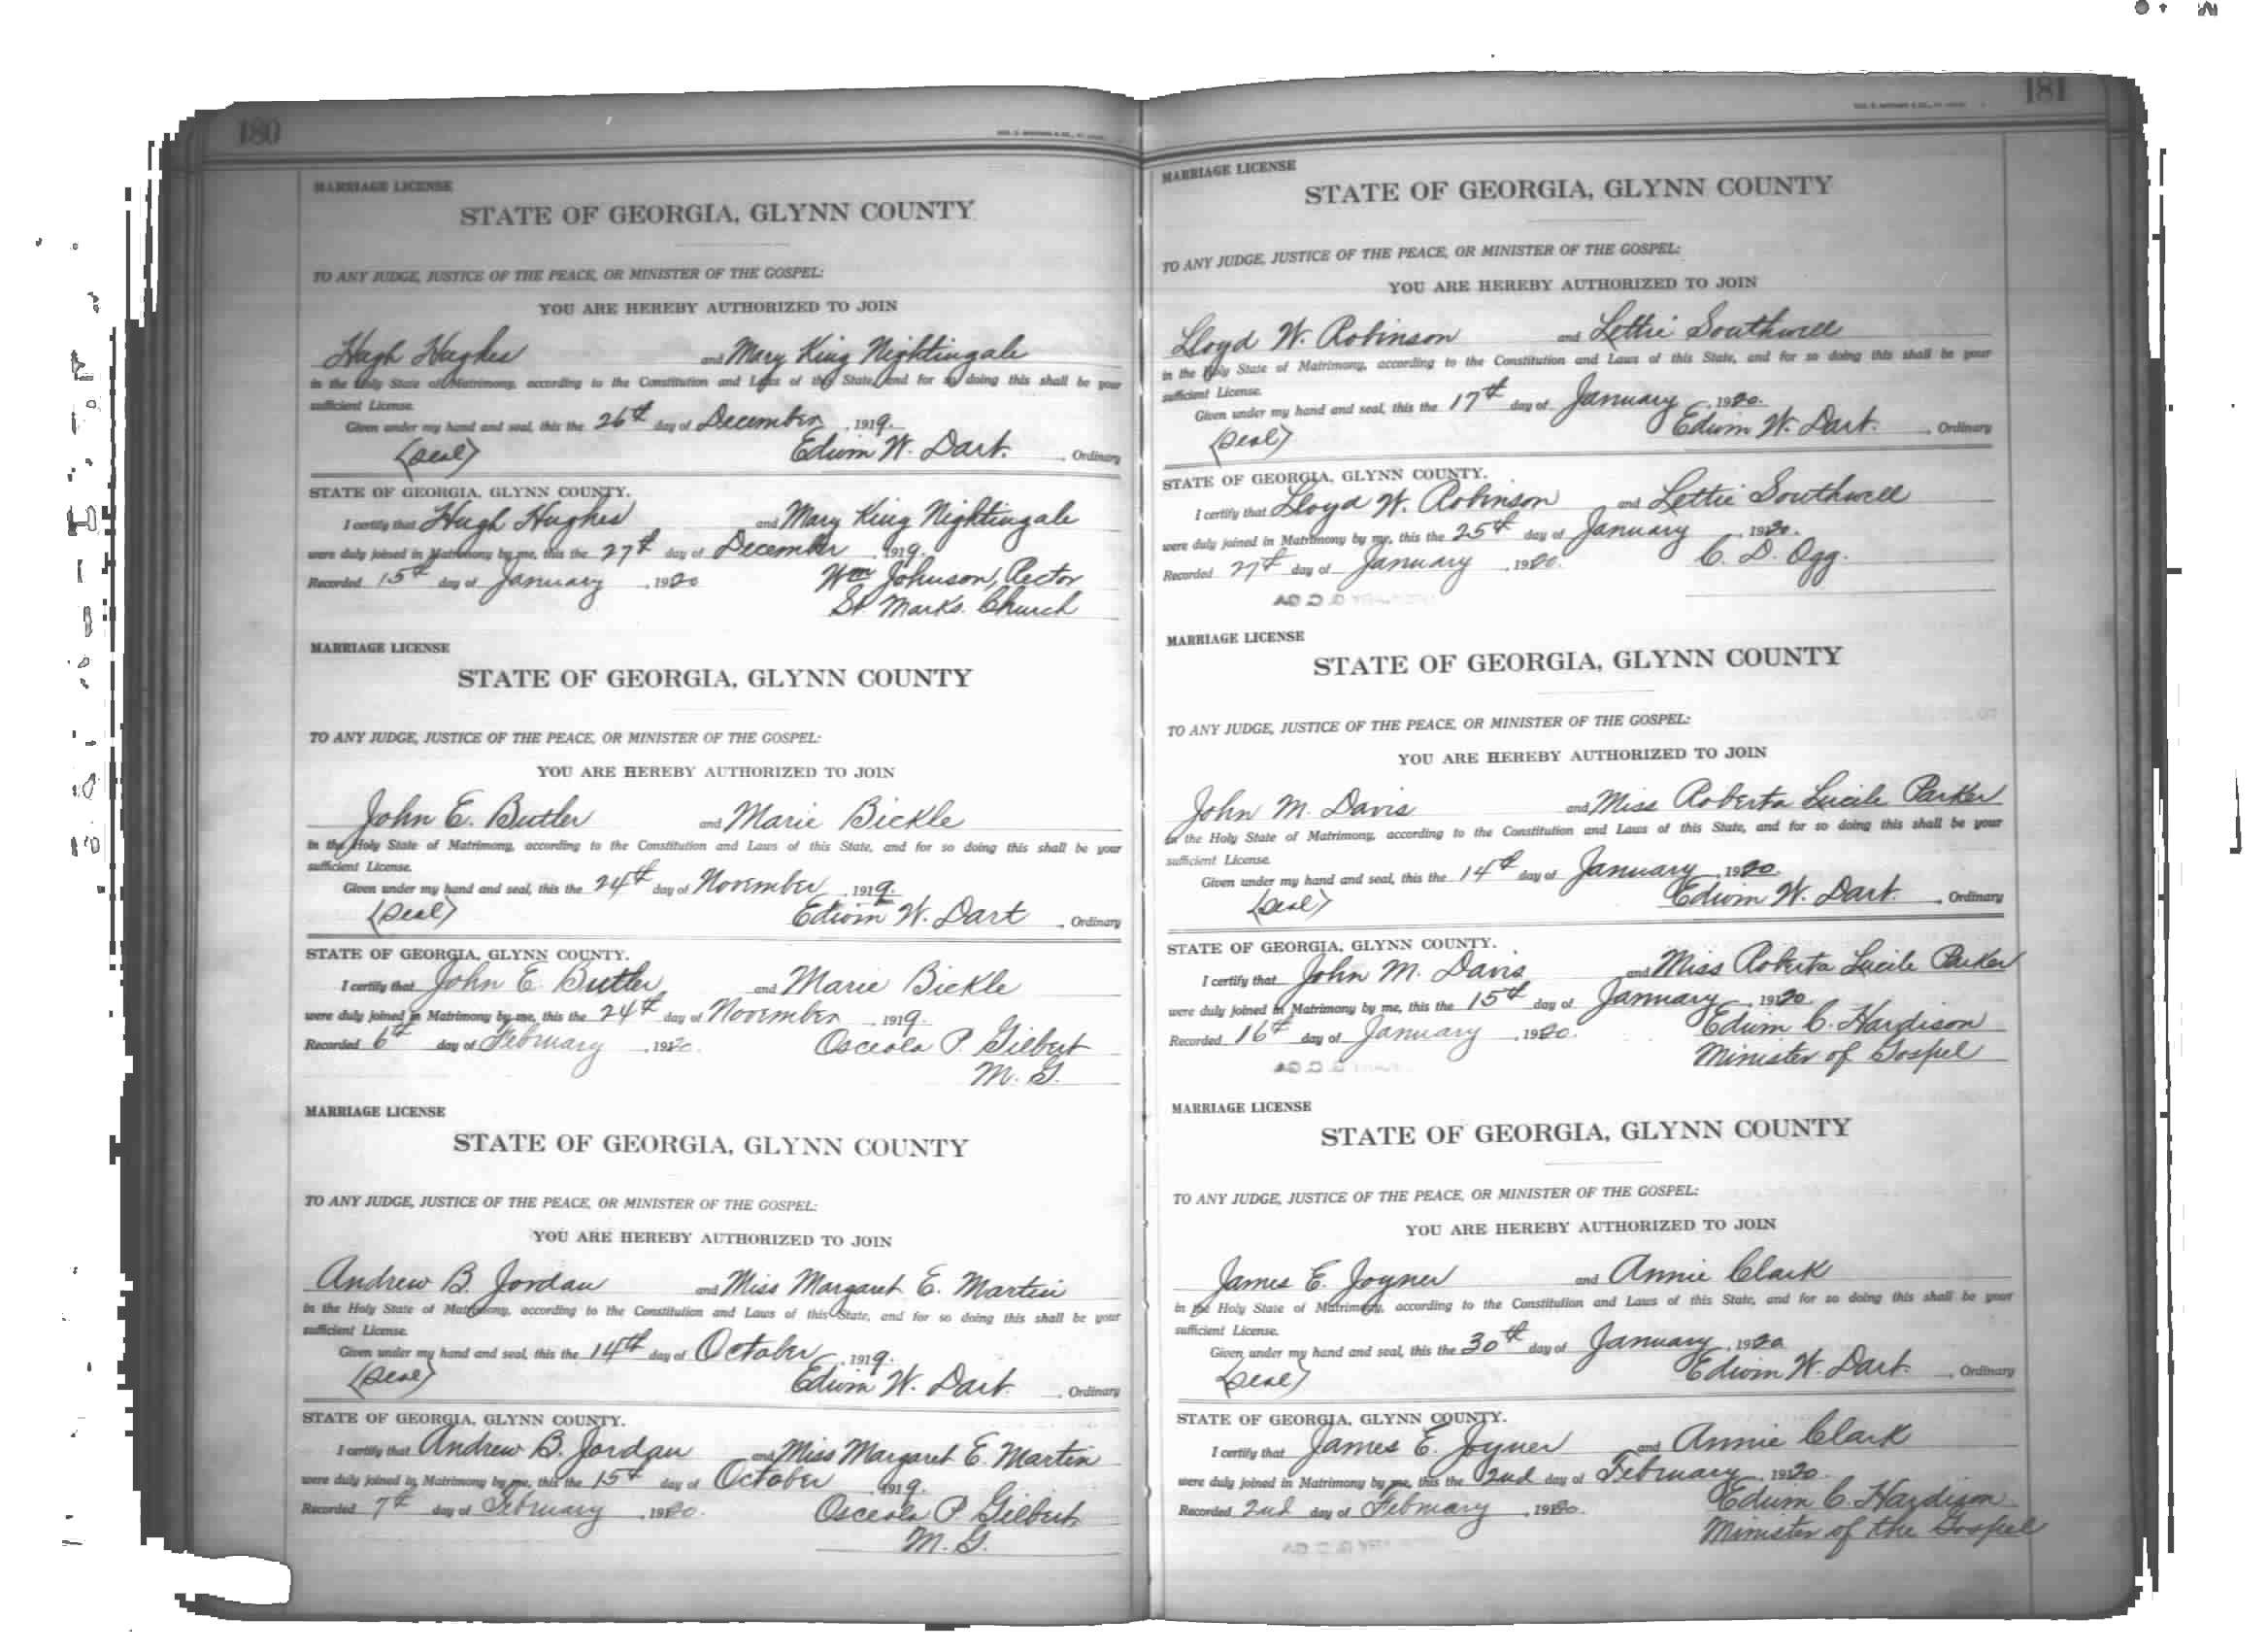 180
MARRIAGE LICENSE
STATE OF GEORGIA, GLYNN COUNTY
TO ANY JUDGE, JUSTICE OF THE PEACE, OR MINISTER OF THE GOSPEL:
YOU ARE HEREBY AUTHORIZED TO JOIN
Hugh Hughes and Mary King Nightingale
in the Holy State of Matrimony, according to the Constitution and Laws of this State, and for so doing this shall be your
sufficient License.
Given under my hand and seal, this the 26th day of December, 1919.
(Seal) Edwin W. Dart. , Ordinary
STATE OF GEORGIA, GLYNN COUNTY.
I certify that Hugh Hughes and Mary King Nightingale
were duly joined in Matrimony by me, this the 27th day of December, 1919.
Recorded 15th day of January, 1920 Wm Johnson, Rector
St Marks. Church
MARRIAGE LICENSE
STATE OF GEORGIA, GLYNN COUNTY
TO ANY JUDGE, JUSTICE OF THE PEACE, OR MINISTER OF THE GOSPEL:
YOU ARE HEREBY AUTHORIZED TO JOIN
John E. Butler and Marie Bickle
in the Holy State of Matrimony, according to the Constitution and Laws of this State, and for so doing this shall be your
sufficient License.
Given under my hand and seal, this the 24th day of November, 1919.
(Seal) Edwin W. Dart , Ordinary
STATE OF GEORGIA, GLYNN COUNTY.
I certify that John E. Butler and Marie Bickle
were duly joined in Matrimony by me, this the 24th day of November, 1919.
Recorded 6th day of February, 1920. Osceola P. Gilbert
M. G.
MARRIAGE LICENSE
STATE OF GEORGIA, GLYNN COUNTY
TO ANY JUDGE, JUSTICE OF THE PEACE, OR MINISTER OF THE GOSPEL:
YOU ARE HEREBY AUTHORIZED TO JOIN
Andrew B. Jordan and Miss Margaret E. Martin
in the Holy State of Matrimony, according to the Constitution and Laws of this State, and for so doing this shall be your
sufficient License.
Given under my hand and seal, this the 14th day of October, 1919.
(Seal) Edwin W. Dart. , Ordinary
STATE OF GEORGIA, GLYNN COUNTY.
I certify that Andrew B. Jordan and Miss Margaret E. Martin
were duly joined in Matrimony by me, this the 15th day of October, 1919.
Recorded 7th day of February, 1920. Osceola P. Gilbert
M. G.
181
MARRIAGE LICENSE
STATE OF GEORGIA, GLYNN COUNTY
TO ANY JUDGE, JUSTICE OF THE PEACE, OR MINISTER OF THE GOSPEL:
YOU ARE HEREBY AUTHORIZED TO JOIN
Lloyd W. Robinson and Lettie Southwell
in the Holy State of Matrimony, according to the Constitution and Laws of this State, and for so doing this shall be your
sufficient License.
Given under my hand and seal, this the 17th day of January, 1920.
(Seal) Edwin W. Dart. , Ordinary
STATE OF GEORGIA, GLYNN COUNTY.
I certify that Lloyd W. Robinson and Lettie Southwell
were duly joined in Matrimony by me, this the 25th day of January, 1920.
Recorded 27th day of January, 1920. C. D. Ogg.
MARRIAGE LICENSE
STATE OF GEORGIA, GLYNN COUNTY
TO ANY JUDGE, JUSTICE OF THE PEACE, OR MINISTER OF THE GOSPEL:
YOU ARE HEREBY AUTHORIZED TO JOIN
John M. Davis and Miss Roberta Lucile Parker
in the Holy State of Matrimony, according to the Constitution and Laws of this State, and for so doing this shall be your
sufficient License.
Given under my hand and seal, this the 14th day of January, 1920.
(Seal) Edwin W. Dart. , Ordinary
STATE OF GEORGIA, GLYNN COUNTY.
I certify that John M. Davis and Miss Roberta Lucile Parker
were duly joined in Matrimony by me, this the 15th day of January, 1920.
Recorded 16th day of January, 1920. Edwin C. Hardison
Minister of Gospel
MARRIAGE LICENSE
STATE OF GEORGIA, GLYNN COUNTY
TO ANY JUDGE, JUSTICE OF THE PEACE, OR MINISTER OF THE GOSPEL:
YOU ARE HEREBY AUTHORIZED TO JOIN
James E. Joyner and Annie Clark
in the Holy State of Matrimony, according to the Constitution and Laws of this State, and for so doing this shall be your
sufficient License.
Given under my hand and seal, this the 30th day of January, 1920
(Seal) Edwin W. Dart. , Ordinary
STATE OF GEORGIA, GLYNN COUNTY.
I certify that James E. Joyner and Annie Clark
were duly joined in Matrimony by me, this the 2nd day of February, 1920.
Recorded 2nd day of February, 1920. Edwin C. Hardison
Minister of the Gospel